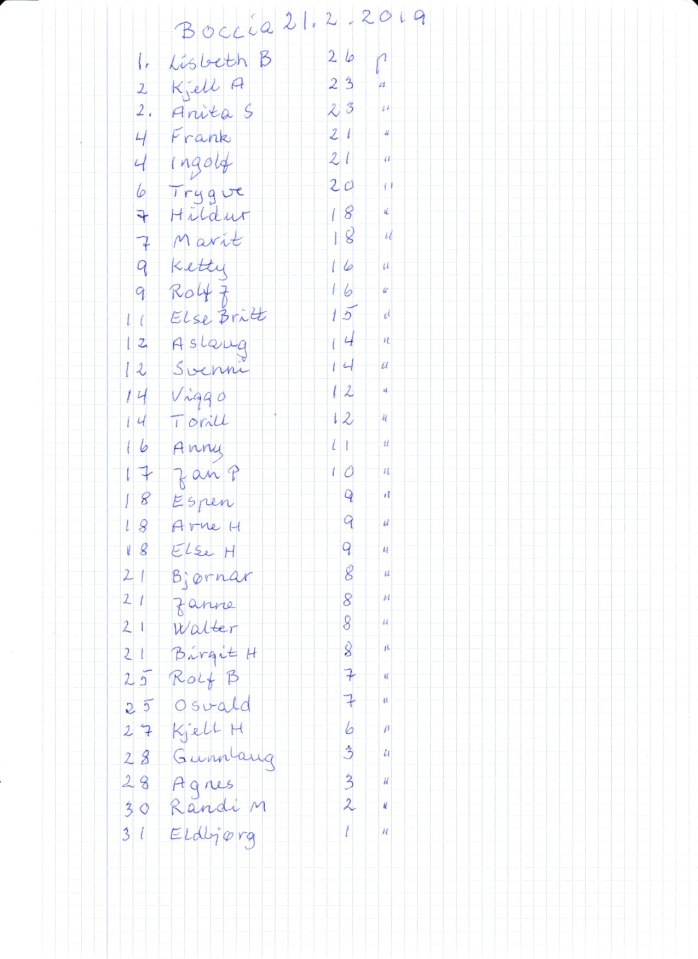 Boccia 21.2.2019
1. Lisbeth B 26 p
2 Kjell A 23 "
2. Anita S 23 "
4 Frank 21 "
4 Ingolf 21 "
6 Trygve 20 "
7 Hildur 18 "
7 Marit 18 "
9 Ketty 16 "
9 Rolf J 16 "
11 Else Britt 15 "
12 Aslaug 14 "
12 Svenni 14 "
14 Viggo 12 "
14 Torill 12 "
16 Anny 11 "
17 Jan P 10 "
18 Espen 9 "
18 Arne H 9 "
18 Else H 9 "
21 Bjørnar 8 "
21 Janne 8 "
21 Walter 8 "
21 Birgit H 8 "
25 Rolf B 7 "
25 Osvald 7 "
27 Kjell H 6 "
28 Gunnlaug 3 "
28 Agnes 3 "
30 Randi M 2 "
31 Eldbjørg 1 "